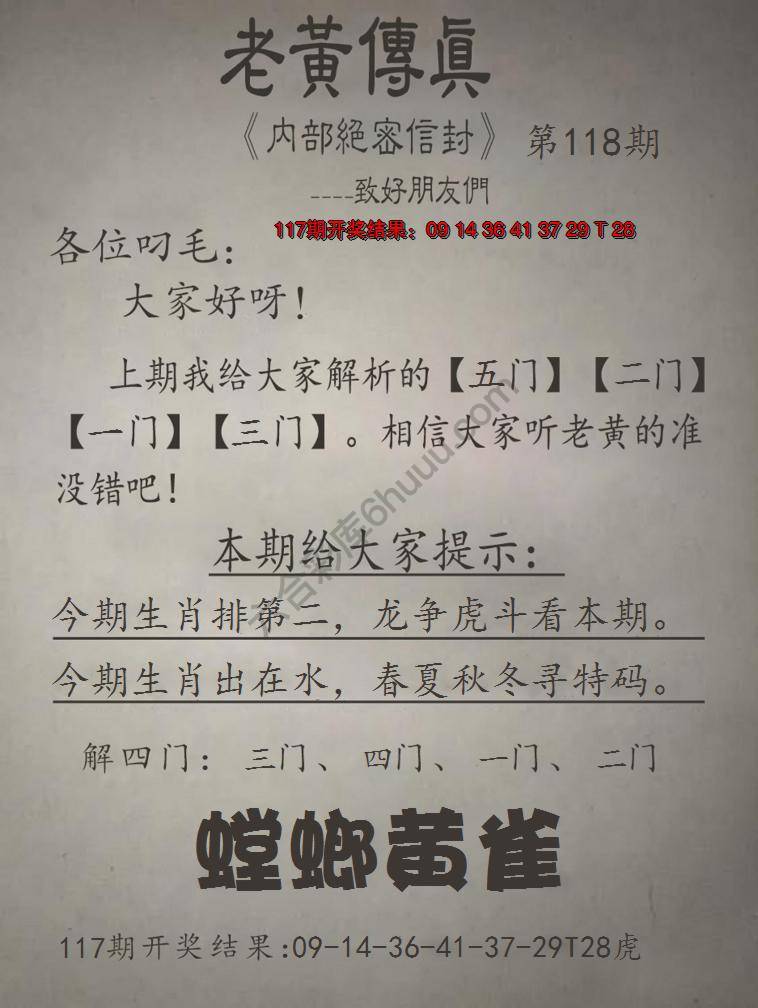 老黃傳眞
《内部絕密信封》 第118期
----致好朋友們
117期开奖结果：09 14 36 41 37 29 T 28
各位叼毛：
大家好呀！
上期我给大家解析的【五门】【二门】
【一门】【三门】。相信大家听老黄的准
没错吧！
本期给大家提示：
今期生肖排第二，龙争虎斗看本期。
今期生肖出在水，春夏秋冬寻特码。
解四门： 三门、 四门、 一门、 二门
螳螂黄雀
117期开奖结果:09-14-36-41-37-29T28虎
六合彩库6huuu.com